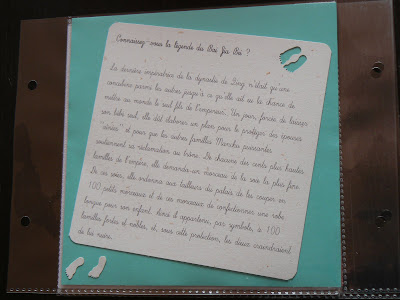 Connaissez-vous la légende du Bai Jia Bei ?
La dernière impératrice de la dynastie de Qing n'était qu'une
concubine parmi les autres jusqu'à ce qu'elle ait eu la chance de
mettre au monde le seul fils de l'empereur. Un jour, forcée de laisser
son bébé seul, elle dût élaborer un plan pour le protéger des épouses
"aînées" et pour que les autres familles Manchu puissantes
soutiennent sa réclamation au trône. De chacune des cents plus hautes
familles de l'empire, elle demanda un morceau de la soie la plus fine.
De ces soies, elle ordonna aux tailleurs du palais de les couper en
100 petits morceaux et de ces morceaux de confectionner une robe
longue pour son enfant. Ainsi il appartenu, par symbole, à 100
familles fortes et nobles, et, sous cette protection, les dieux craindraient
de lui nuire.